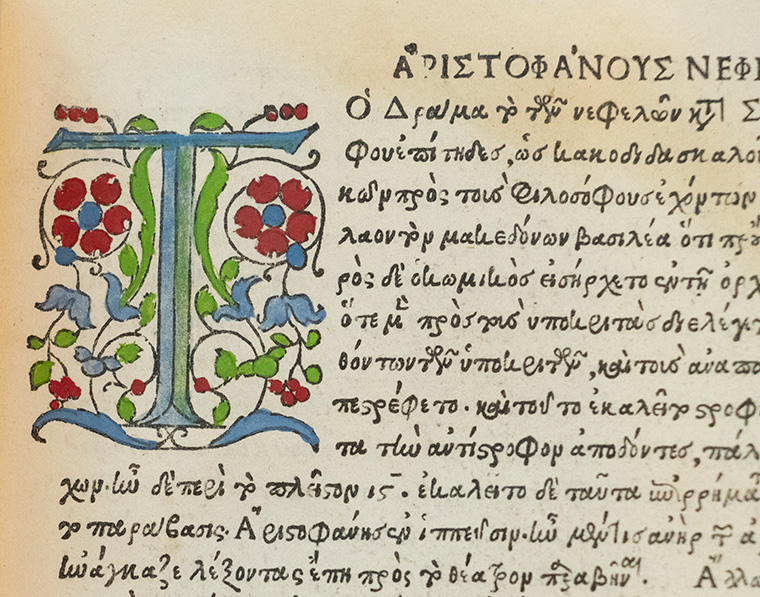 ἈΡΙΣΤΟΦΆΝΟΥΣ ΝΕΦΕ
Τ Ὸ Δρᾶμα τὸ τῶν νεφελῶν κατὰ Σ
φου ἐπίτηδες, ὡς κακοδιδασκαλοῦ
κῶν πρὸς τοὺς Φιλοσόφους ἐχόντων
λαον τὸν μακεδόνων βασιλέα ὅτι
ρὸς δὲ ὁ κωμικὸς εἰσήρχετο ἐν τῇ ὀρχ
ὅτε μὲν πρὸς τοὺς ὑποκριτὰς διελέγ
θόντων τῶν ὑποκριτῶν, καὶ τοὺς ἀναπα
περέφετο. καὶ τοῦτο ἐκαλεῖτο στροφ
τα τὴν ἀντίστροφον ἀποδόντες, πάλ
χον. ἦν δὲ περὶ τὸ πλεῖστον ις. ἐκαλεῖτο δὲ ταῦτα ἐπίρρημα
τὸ παράβασις. Ἀριστοφάνης ἐν ἱππεῦσιν. ἦν μέν τις ἀνὴρ τῶν ἀ
ἠνάγκαζε λέξοντας ἔπη πρὸς τὸ θέατρον παραβῆναι. Ἀλλα